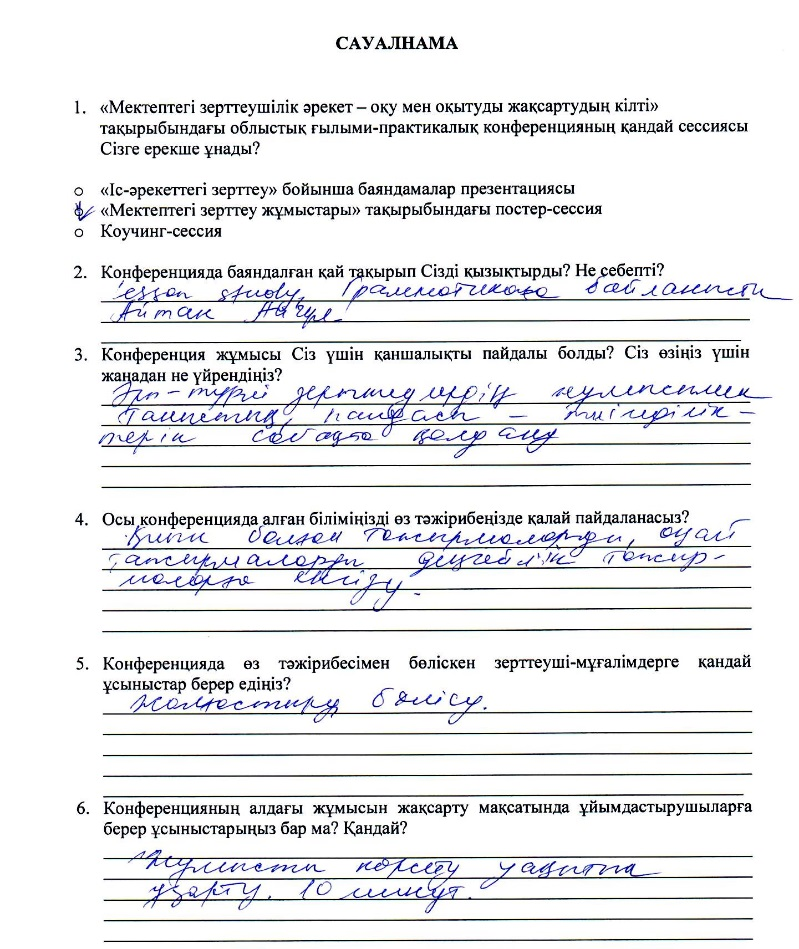 САУАЛНАМА
1. «Мектептегі зерттеушілік әрекет – оқу мен оқытуды жақсартудың кілті»
тақырыбындағы облыстық ғылыми-практикалық конференцияның қандай сессиясы
Сізге ерекше ұнады?
«Іс-әрекеттегі зерттеу» бойынша баяндамалар презентациясы
«Мектептегі зерттеу жұмыстары» тақырыбындағы постер-сессия
Коучинг-сессия
2. Конференцияда баяндалған қай тақырып Сізді қызықтырды? Не себепті?
lesson study, Грамматикаға байланысты
Айтан
3. Конференция жұмысы Сіз үшін қаншалықты пайдалы болды? Сіз өзіңіз үшін
жаңадан не үйрендіңіз?
Әр-түрлі зерттеулердің
тиімділік-
терін сабақта қолдану
4. Осы конференцияда алған біліміңізді өз тәжірибеңізде қалай пайдаланасыз?
Қиын болған тапсырмаларды, оңай
тапсырмаларды деңгейлік тапсыр-
маларға енгізу.
5. Конференцияда өз тәжірибесімен бөліскен зерттеуші-мұғалімдерге қандай
ұсыныстар берер едіңіз?
Жалғастыру, бөлісу.
6. Конференцияның алдағы жұмысын жақсарту мақсатында ұйымдастырушыларға
берер ұсыныстарыңыз бар ма? Қандай?
Жұмысты көрсету уақытын
ұзарту. 10 минут.